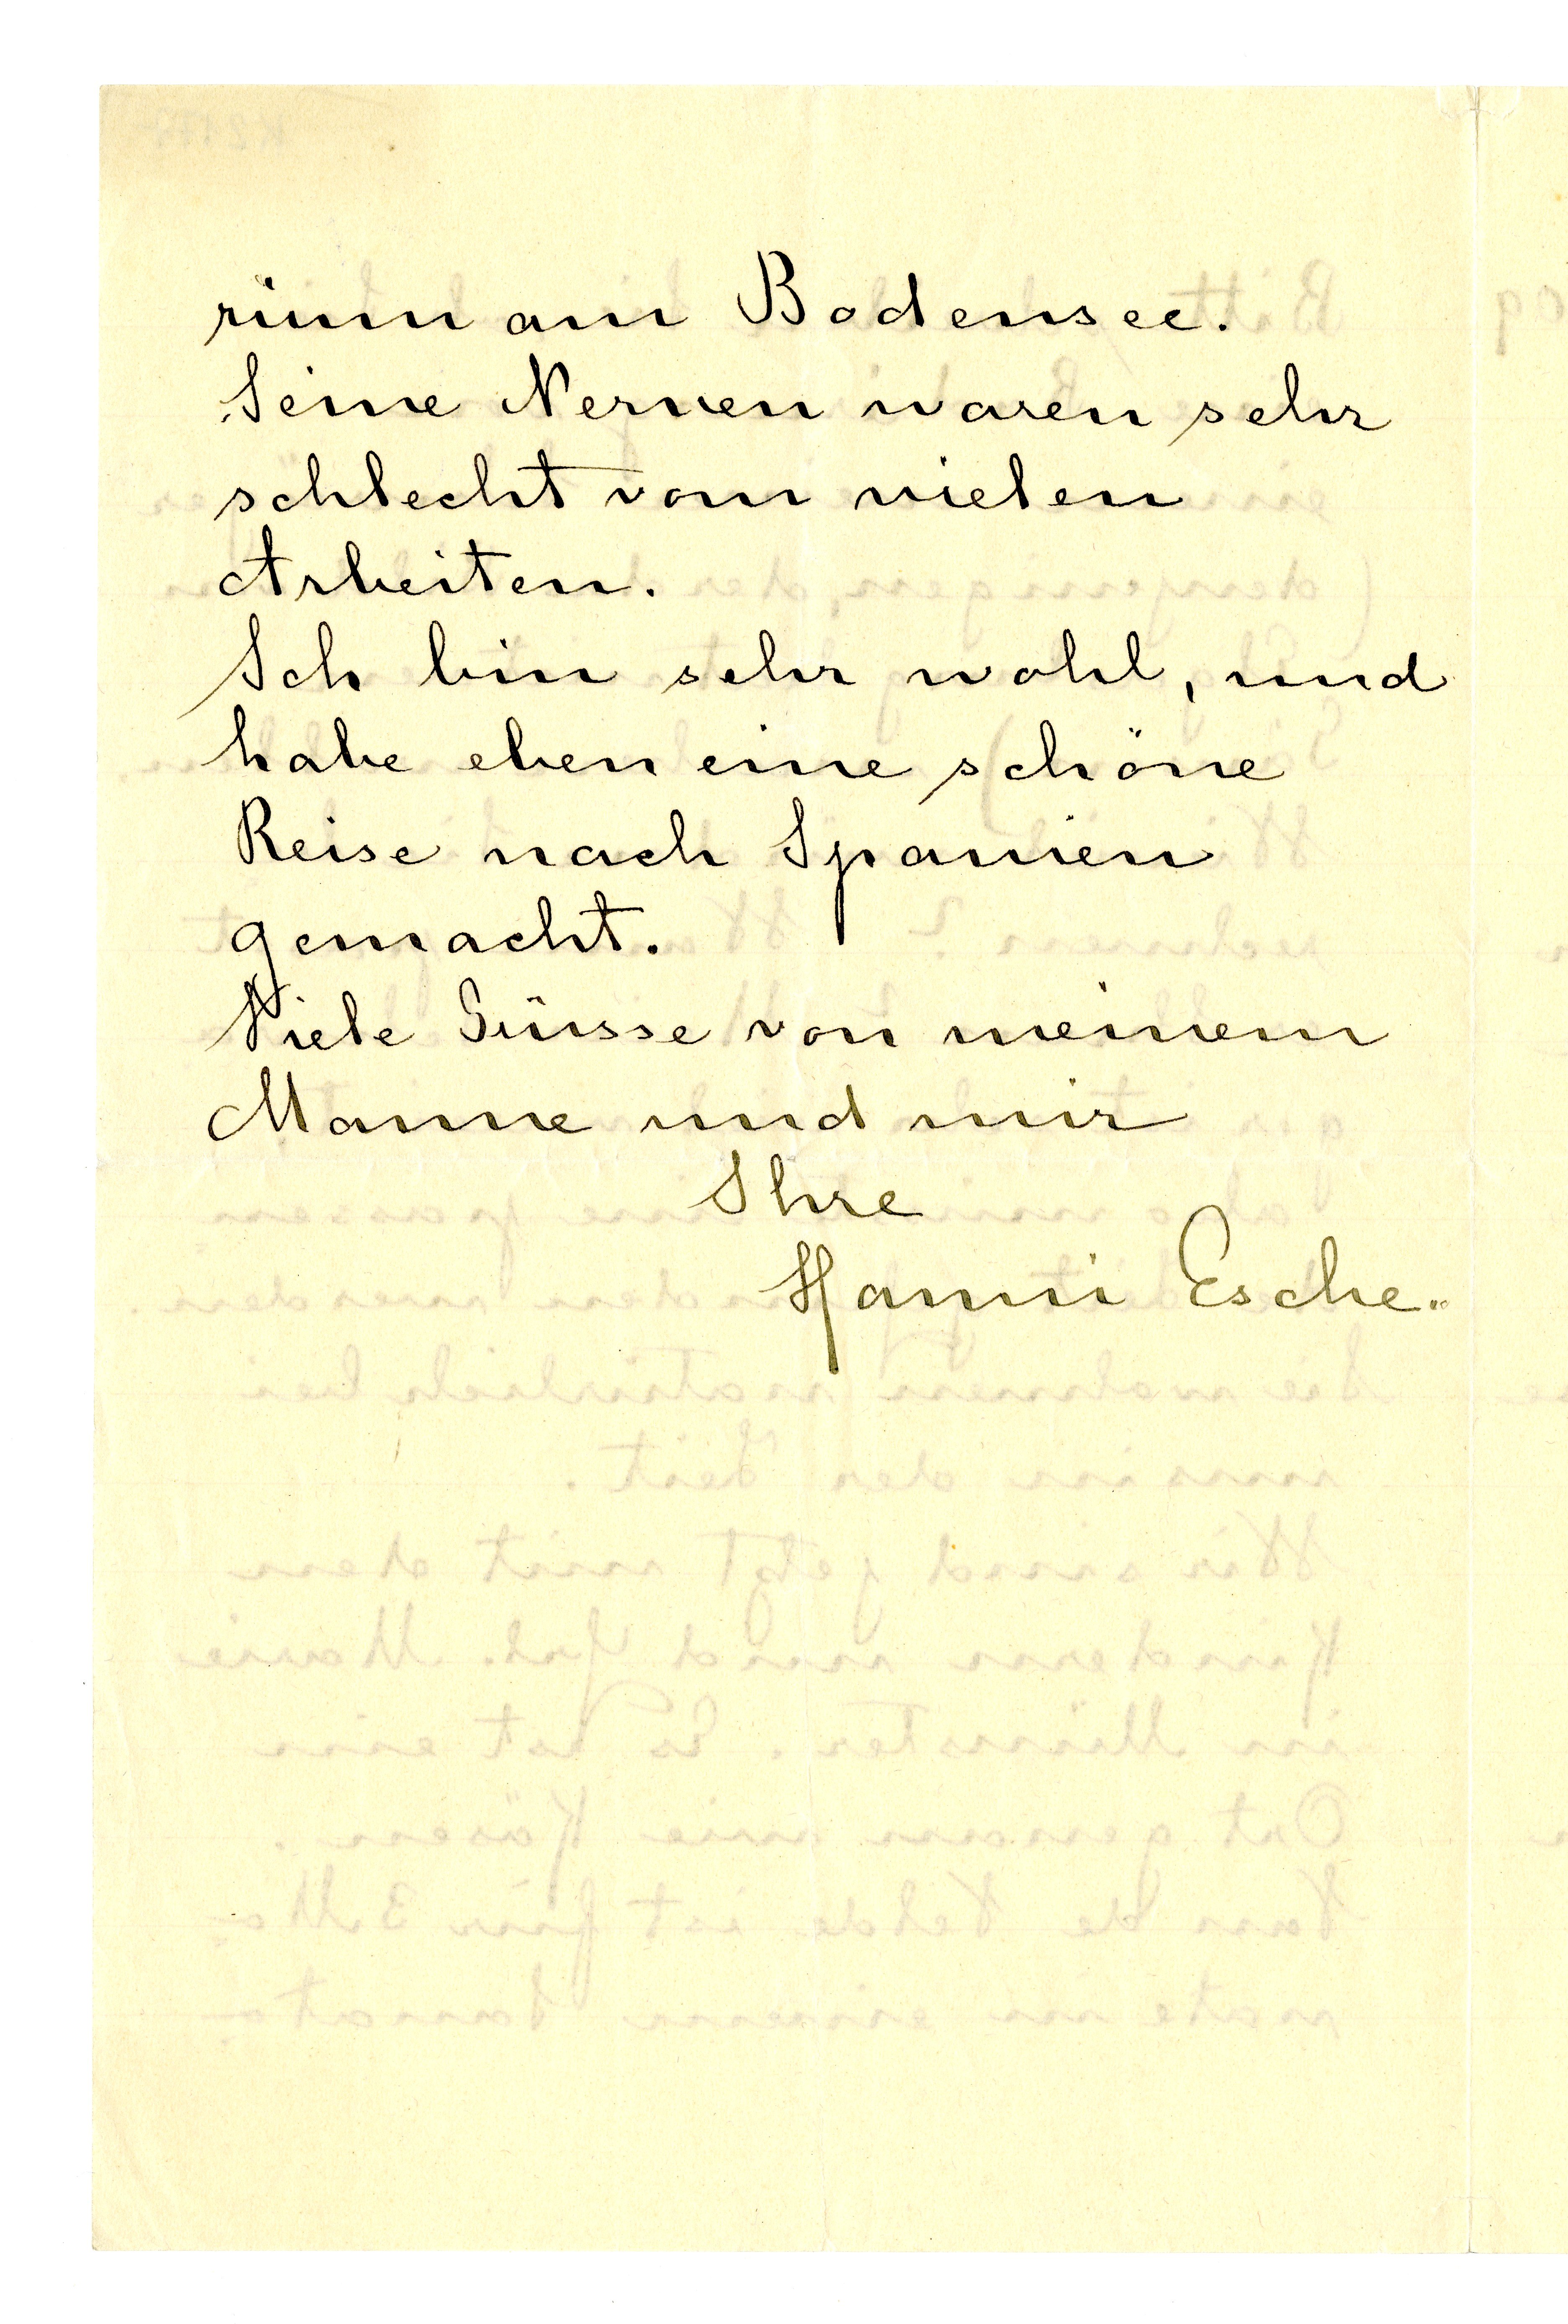 rium am Bodensee.
Seine Nerven waren sehr
schlecht vom vielen
Arbeiten.
Ich bin sehr wohl, und
habe eben eine schöne
Reise nach Spanien
gemacht.
Viele Grüsse von meinem
Manne und mir
Ihre
Hanni Esche.